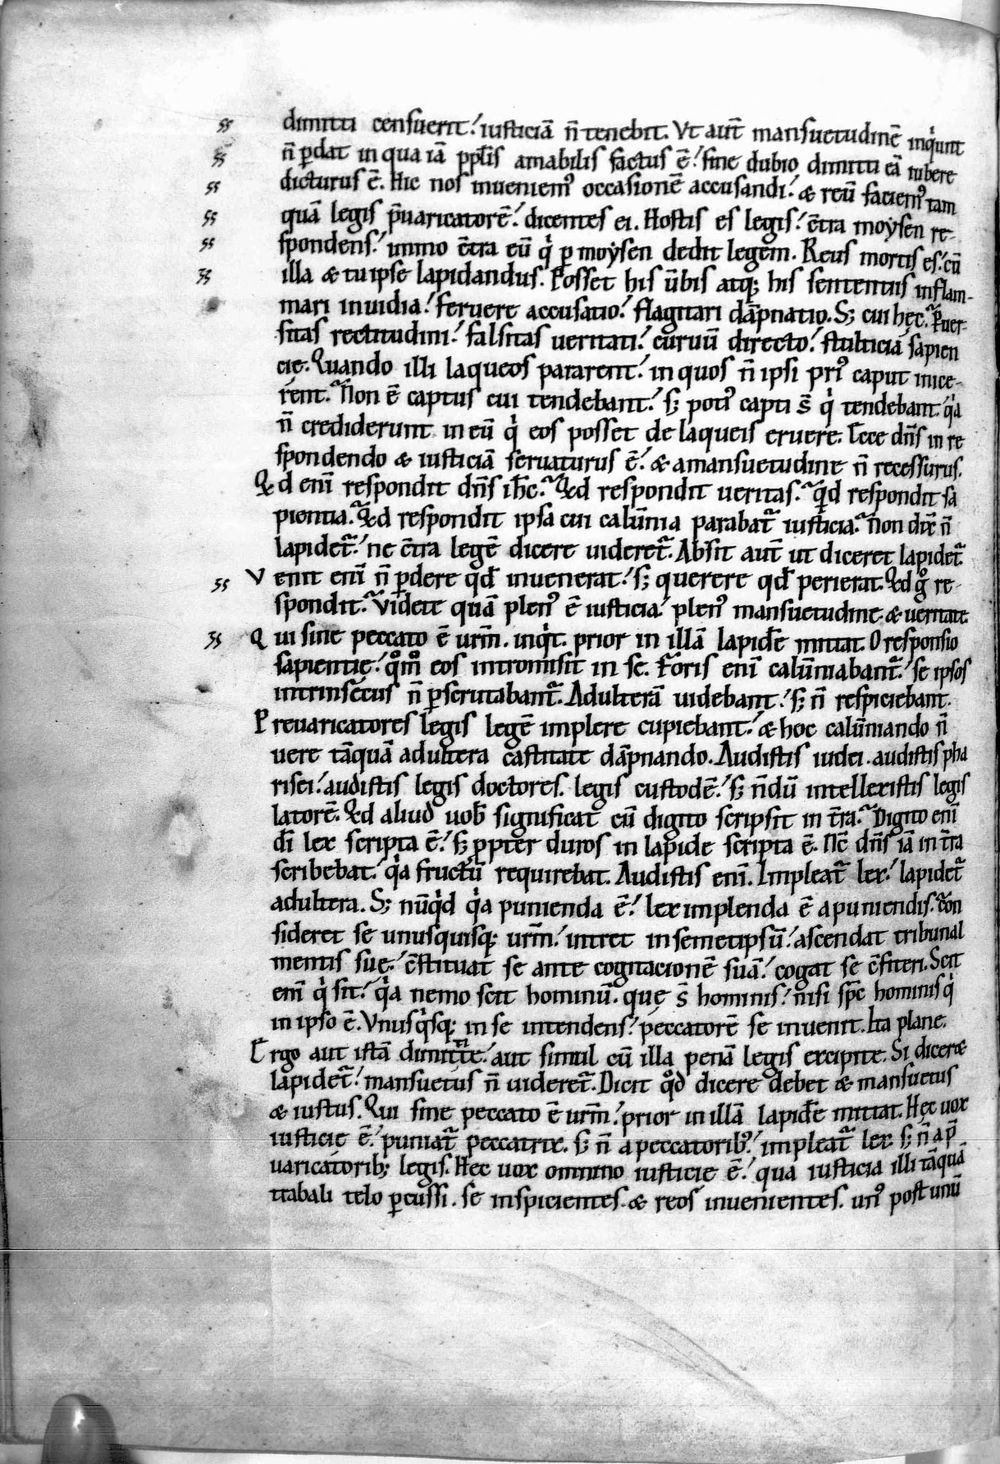 ss dimitti censuerit. iusticiā n̄ tenebit. Vt aut̄ mansuetudinē inq̇unt
ss n̄ ꝑdat in qua iā pp̄lis amabilis factus ē. sine dubio dimitti eā iubere
ss dicturus ē. Hic nos inueniem᷒ occasionē accusandi. & reū faciem᷒ tam
ss quā legis p̄uaricatorē. dicentes ei. Hostis es legis. c̄tra moẏsen re
ss spondens. immo c̄tra eū q̇ ꝑ moẏsen dedit legem. Reus mortis es. cū
ss illa & tu ipse lapidandus. Posset his u̅bis atq; his sententiis inflam-
mari inuidia. feruere accusatio. flagitari dāpnatio. S; cui hęc. Puer-
sitas rectitudini. falsitas ueritati. curuū directo. stulticia sapien
cię. Quando illi laqueos pararent. in quos n̄ ipsi pri᷒ caput inice-
rent. Non ē captus cui tendebant. s; poti᷒ capti s̄ q̇ tendebant. q̇a
n̄ crediderunt in eū q̇ eos posset de laqueis eruere. Ecce dn̄s in re
spondendo & iusticiā seruaturus ē. & a mansuetudine n̄ recessurus.
Qd enī respondit dn̄s ih̄c. Qd respondit ueritas. q̄d respondit sa
pientia. Qd respondit ipsa cui calūnia parabat᷑ iusticia. Non dix̄ n̄
lapidet᷑. ne c̄tra legē dicere uideret᷑. Absit aut̄ ut diceret lapidet᷑.
ss Venit enī n̄ ꝑdere qd̄ inuenerat. s; querere qd̄ perierat. Qd g̊ re
spondit. Videte quā plen᷒ ē iusticia. plen᷒ mansuetudine. & ueritate.
ss Qui sine peccato ē ur̄m. inq̇t. prior in illā lapidē mittat. O responsio
sapientię. q̊m̊ eos intromisit in se. Foris enī calūniabant᷑. se ipsos
intrinsecus n̄ ꝑscrutabant᷑. Adulterā uidebant. s; n̄ respiciebant.
Preuaricatores legis legē implere cupiebant. & hoc calūniando n̄
uere tāquā adultera castitate dāpnando. Audistis iudei. audistis pha
risei. audistis legis doctores. legis custodē. s; n̄dū intellexistis legis
latorē. Qd aliud uob̄ significat cū digito scripsit in t̄ra. Digito enī
dī lex scripta ē. s; ꝓpter duros in lapide scripta ē. Nc̄ dn̄s iā in t̄ra
scribebat. q̇a fructū requirebat. Audistis enī. Impleat᷑ lex. lapidet᷑
adultera. S; nūq̇d q̇a punienda ē. lex implenda ē a puniendis. c̄on
sideret se unusquisq; ur̄m. intret in semetipsū. ascendat tribunal
mentis suę. c̄stituat se ante cogitacionē suā. cogat se c̄fiteri. Scit
enī q̇ sit. q̇a nemo scit hominū. que s̄ hominis. nisi sp̄c hominis q̇
in ipso ē. Vnusq̇sq; in se intendens. peccatorē se inuenit. Ita plane.
Ergo aut istā dimittite. aut simul cū illa penā legis excipite. Si dicer&
lapidet᷑. mansuetus n̄ uideret᷑. Dicit q̊d dicere debet & mansuetus
& iustus. Qui sine peccato ē ur̄m. prior in illā lapidē mittat. Hęc uox
iusticię ē. puniat᷑ peccatrix. s; n̄ a peccatorib᷒. impleat᷑ lex. s; n̄ a p̄
uaricatorib; legis. Hec uox omnino iusticię ē. qua iusticia illi tāquā
trabali telo ꝑcussi. se inspicientes. & reos inuenientes. un᷒ post unū